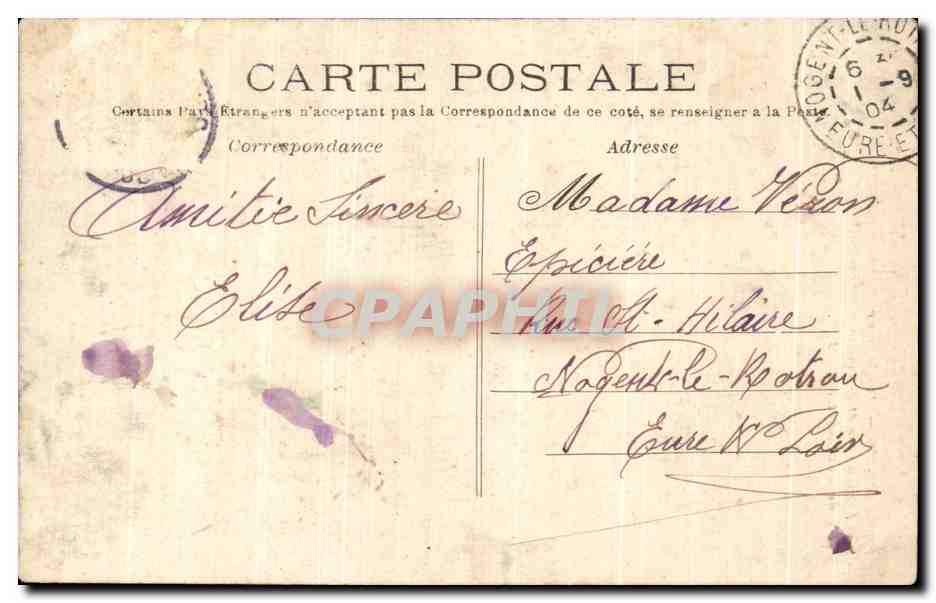 CARTE POSTALE
Certains Pays Étrangers n'acceptant pas la Correspondance de ce coté, se renseigner à la Poste.
Correspondance
Adresse
NOGENT-LE-ROT
6
1 -9
04
EURE-ET
Amitié Sincere
Elise
Madame Véron
Epicière
Rue St-Hilaire
Nogent-le-Rotrou
Eure & Loir
CPAPHIL